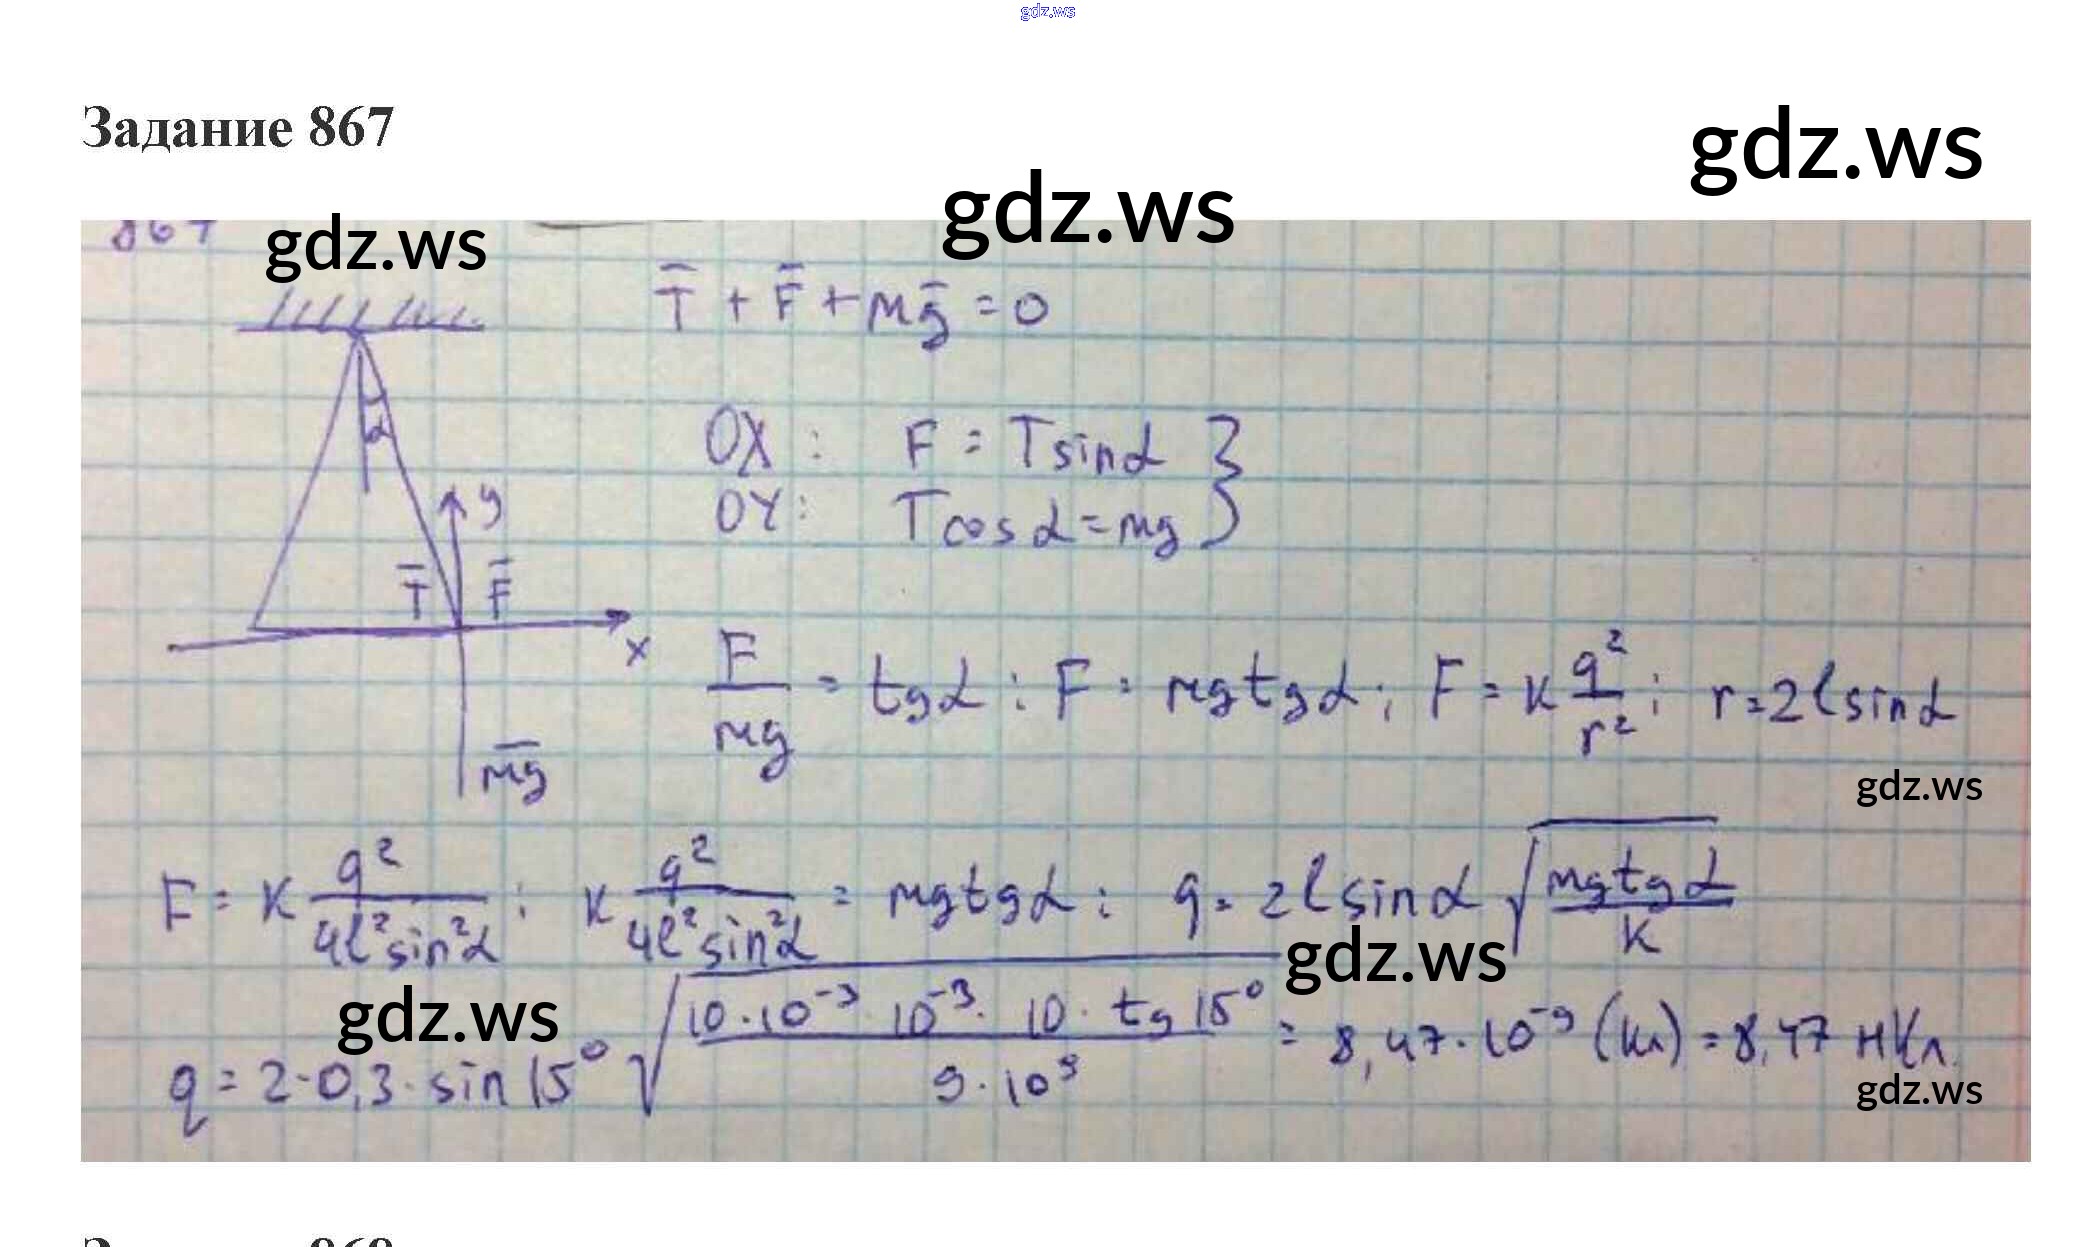 gdz.ws
Задание 867
gdz.ws
gdz.ws
867
gdz.ws
T̅ + F̅ + mg̅ = 0
α
OX : F = T sinα }
OY : T cosα = mg }
y
T̅ F̅
x
F/mg = tgα ; F = mg tgα ; F = k q²/r² ; r = 2l sinα
mg̅
gdz.ws
F = k q²/4l²sin²α ; k q²/4l²sin²α = mg tgα ; q = 2l sinα √(mg tgα/k)
gdz.ws
gdz.ws
q = 2·0,3·sin 15° √(10·10⁻³·10⁻³·10·tg 15°/9·10⁹) = 8,47·10⁻⁹ (Кл) = 8,47 нКл.
gdz.ws